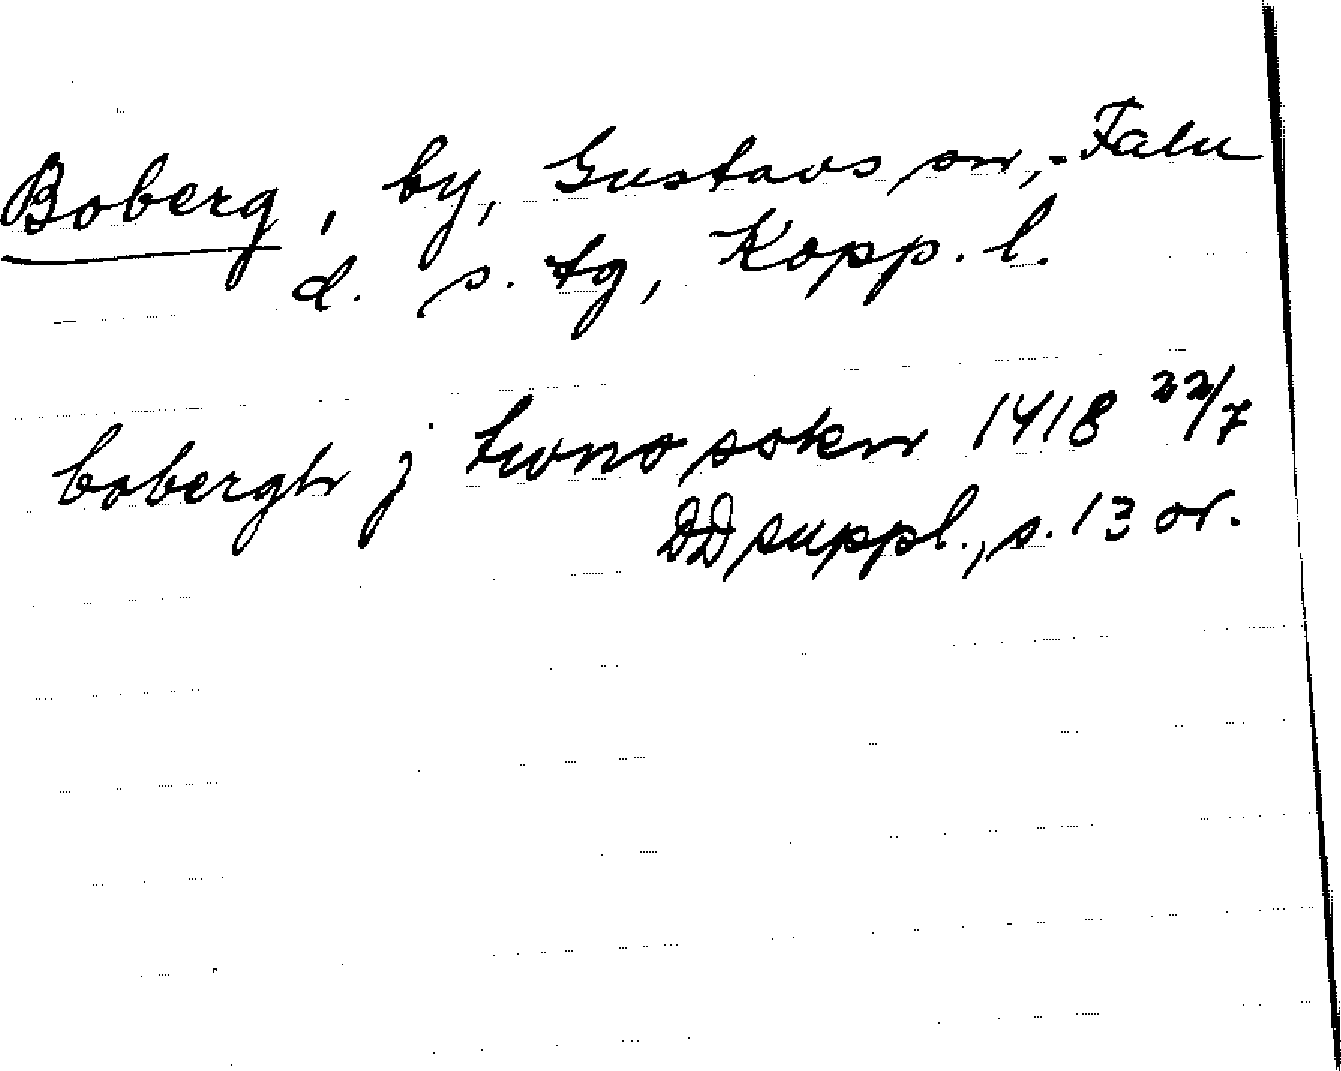 Boberg, by, Gustavs sn, Falu
d. s. tg, Kopp. l.
bobergh j sokn 1418 22/7
DD suppl., s. 13 or.